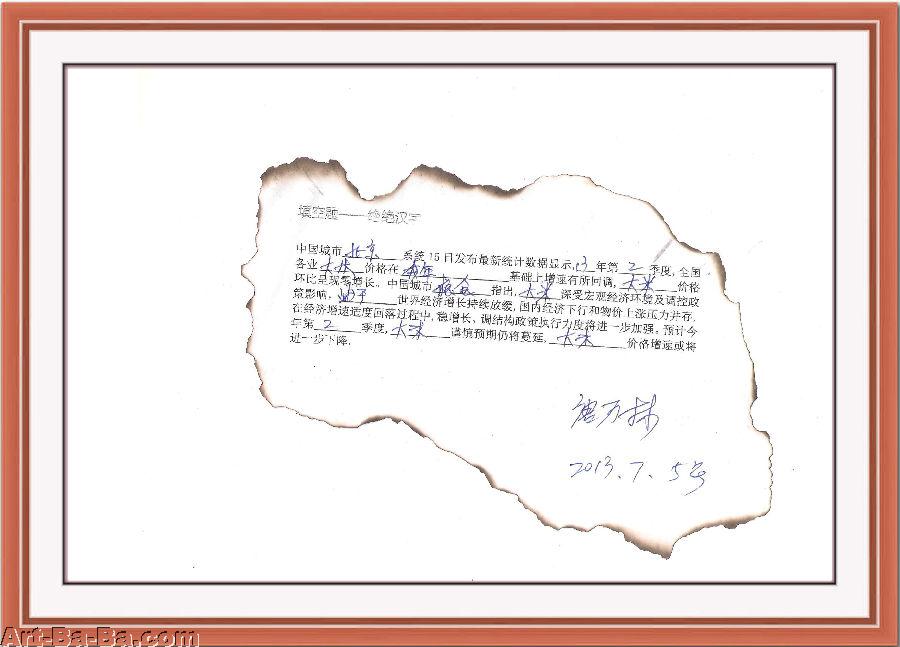 填空题——终绝汉字
中国城市 北京 系统15日发布最新统计数据显示,13年第 2 季度,全国
各业 大米 价格在 基础上增速有所回调, 大米 价格
环比呈现零增长。中国城市 粮食 指出, 大米 深受宏观经济环境及调控政
策影响, 世界经济增长持续放缓,国内经济下行和物价上涨压力并存,
在经济增速适度回落过程中,稳增长、调结构政策执行力度将进一步加强。预计今
年第 2 季度, 大米 谨慎预期仍将蔓延, 大米 价格增速或将
进一步下降.
2013.7.5号
Art-Ba-Ba.com